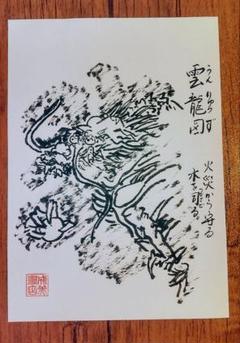 うんりゅうず
雲龍図
火災から守る
水を